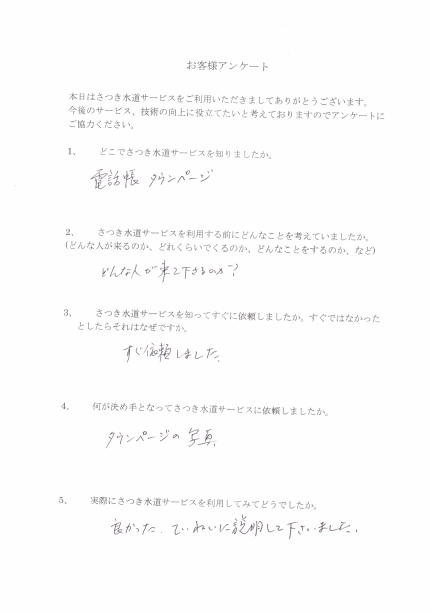 お客様アンケート
本日はさつき水道サービスをご利用いただきましてありがとうございます。
今後のサービス、技術の向上に役立てたいと考えておりますのでアンケートに
ご協力ください。
1、 どこでさつき水道サービスを知りましたか。
電話帳 タウンページ
2、 さつき水道サービスを利用する前にどんなことを考えていましたか。
(どんな人が来るのか、どれくらいでくるのか、どんなことをするのか、など)
どんな人が来て下さるのか?
3、 さつき水道サービスを知ってすぐに依頼しましたか。すぐではなかった
としたらそれはなぜですか。
すぐ依頼しました。
4、 何が決め手となってさつき水道サービスに依頼しましたか。
タウンページの写真
5、 実際にさつき水道サービスを利用してみてどうでしたか。
良かった、ていねいに説明して下さいました。